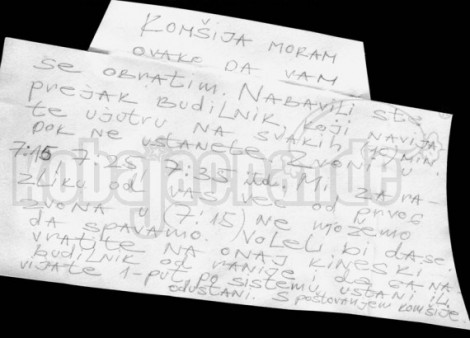 KOMŠIJA MORAM
OVAKO DA VAM
SE OBRATIM. NABAVILI STE
PREJAK BUDILNIK KOJI NAVIJA
TE UJUTRU NA SVAKIH (10) MIN.
DOK NE USTANETE. ZVONI U
7:15 7:25, 7:35 itd. MI ZA RA-
ZLIKU OD VAS VEĆ OD PRVOG
ZVONA U (7:15) NE MOŽEMO
DA SPAVAMO. VOLELI BI DA SE
VRATITE NA ONAJ KINESKI
BUDILNIK OD RANIJE I DA GA NA-
VIJATE 1-PUT PO SISTEMU, USTANI ILI
ODUSTANI. S POŠTOVANJEM KOMŠIJE.